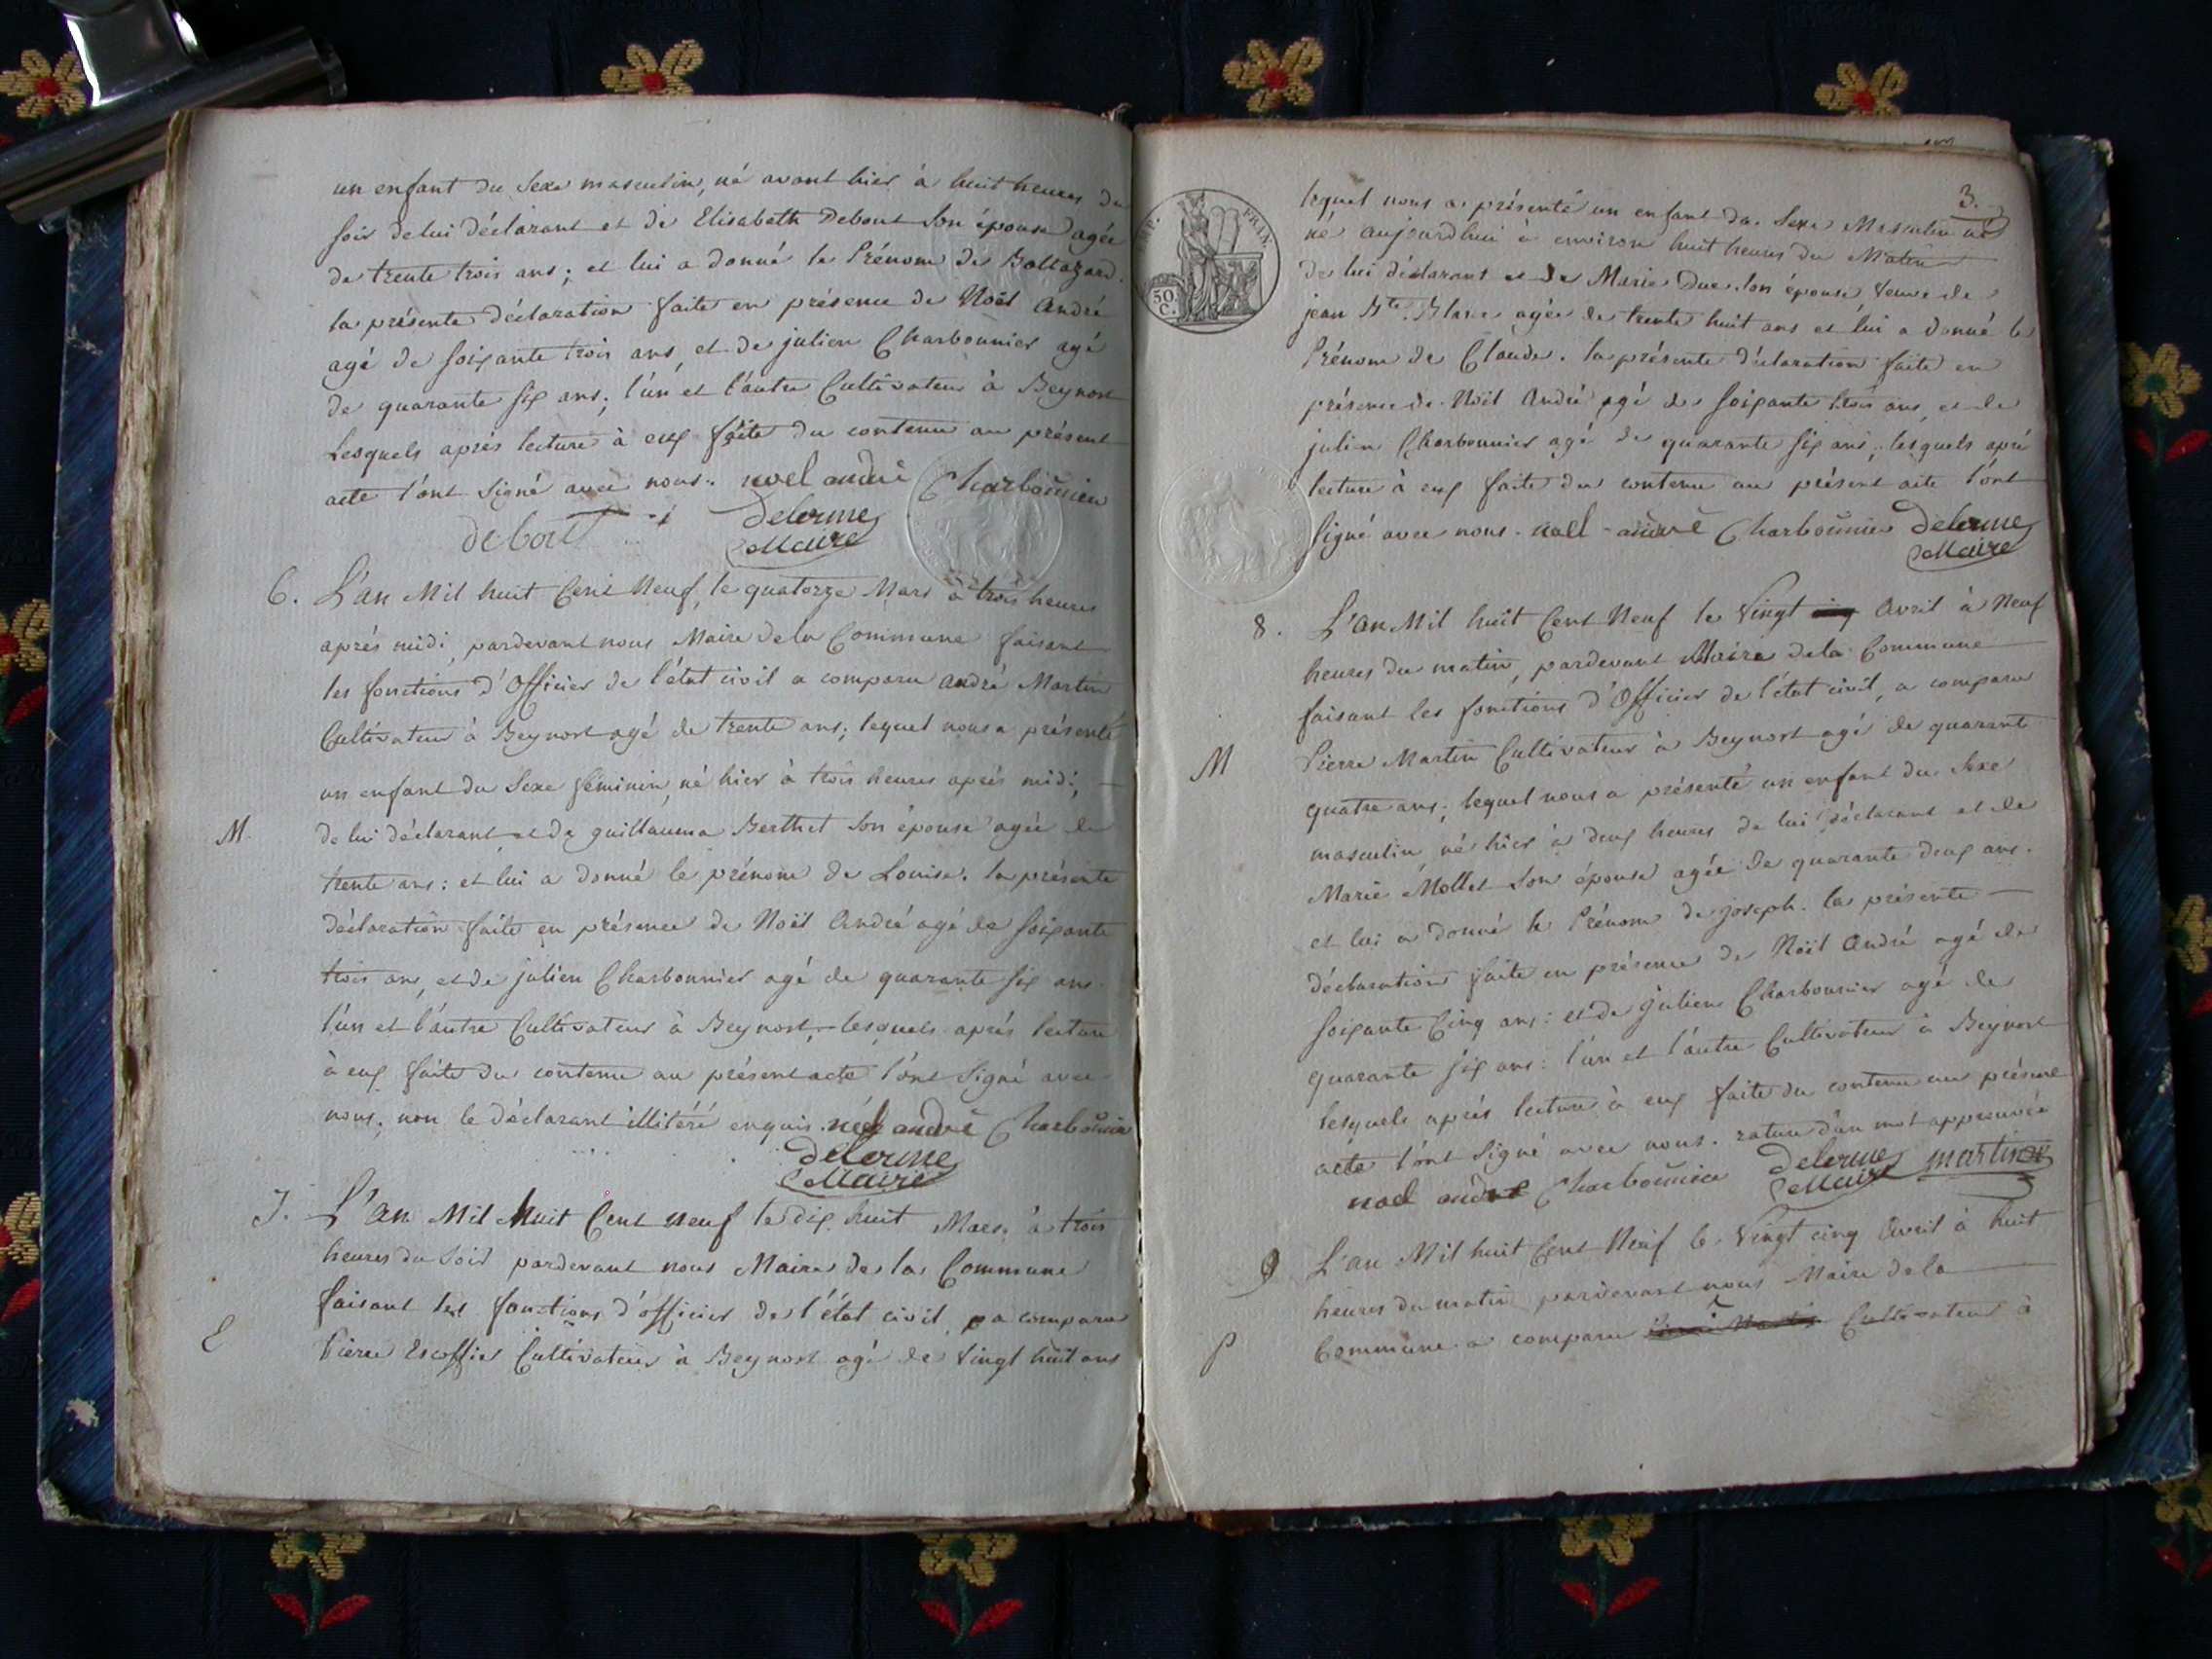 un enfant du Sexe masculin, né avant hier à huit heures du
soir de lui déclarant et de Elisabeth Debout Son épouse agée
de trente trois ans; et lui a donné le Prénom de Baltazard.
la présente déclaration faite en présence de Noël André
agé de soixante trois ans, et de julien Charbonnier agé
de quarante six ans; l'un et l'autre Cultivateur à Beynost
Lesquels aprés lecture à eux faite du contenu au présent
acte l'ont Signé avec nous. noel andré Charbonnier
debout Delorme
Maire
6. L'an Mil huit Cent Neuf, le quatorze Mars à trois heures
aprés midi, pardevant nous Maire dela Commune faisant
les fonctions d'Officier de l'état civil a comparu André Martin
Cultivateur à Beynost agé de trente ans; lequel nous a présenté
un enfant du Sexe féminin, né hier à trois heures aprés midi,
M. de lui déclarant et de guillauma Berthet Son épouse agée de
trente ans: et lui a donné le prénom de Louise. la présente
déclaration faite en présence de Noël André agé de soixante
trois ans, et de julien Charbonnier agé de quarante six ans.
l'un et l'autre Cultivateur à Beynost, lesquels aprés lecture
à eux faite du contenu au présent acte l'ont Signé avec
nous, non le déclarant illitéré enquis. noel andré Charbonnier
Delorme
Maire
7. L'an Mil Huit Cent neuf le dix huit Mars, à trois
heures du Soir pardevant nous Maire de la Commune
faisant les fonctions d'officier de l'état civil, a comparu
E Pierre Escoffier Cultivateur à Beynost agé de Vingt huit ans
3.
IMP. FRAN.
50 C.
lequel nous a présenté un enfant du Sexe Masculin né
né aujourdhui à environ huit heures du Matin
de lui déclarant et de Marie Duc son épouse Veuve de
jean Bte. Blanc agée de trente huit ans et lui a donné le
Prénom de Claude. la présente déclaration faite en
présence de Noël André agé de soixante trois ans, et de
julien Charbonnier agé de quarante six ans, lesquels aprés
lecture à eux faite du contenu au présent acte l'ont
signé avec nous. noel andré Charbonnier Delorme
Maire
8. L'an Mil huit Cent Neuf le Vingt Avril à Neuf
heures du matin, pardevant Maire dela Commune
faisant les fonctions d'Officier de l'état civil, a comparu
M Pierre Martin Cultivateur à Beynost agé de quarante
quatre ans; lequel nous a présenté un enfant du Sexe
masculin, né hier à deux heures de lui déclarant et de
Marie Mollet Son épouse agée de quarante deux ans.
et lui a donné le Prénom de joseph. la présente
déclaration faite en présence de Noël André agé de
soixante Cinq ans: et de julien Charbonnier agé de
quarante six ans: l'un et l'autre Cultivateur à Beynost
lesquels aprés lecture à eux faite du contenu au présent
acte l'ont Signé avec nous. rature d'un mot approuvée
noel andré Charbonnier Delorme martin
Maire
9 L'an Mil huit Cent Neuf le Vingt cinq Avril à huit
heures du matin pardevant nous Maire dela
P Commune a comparu Cultivateur à